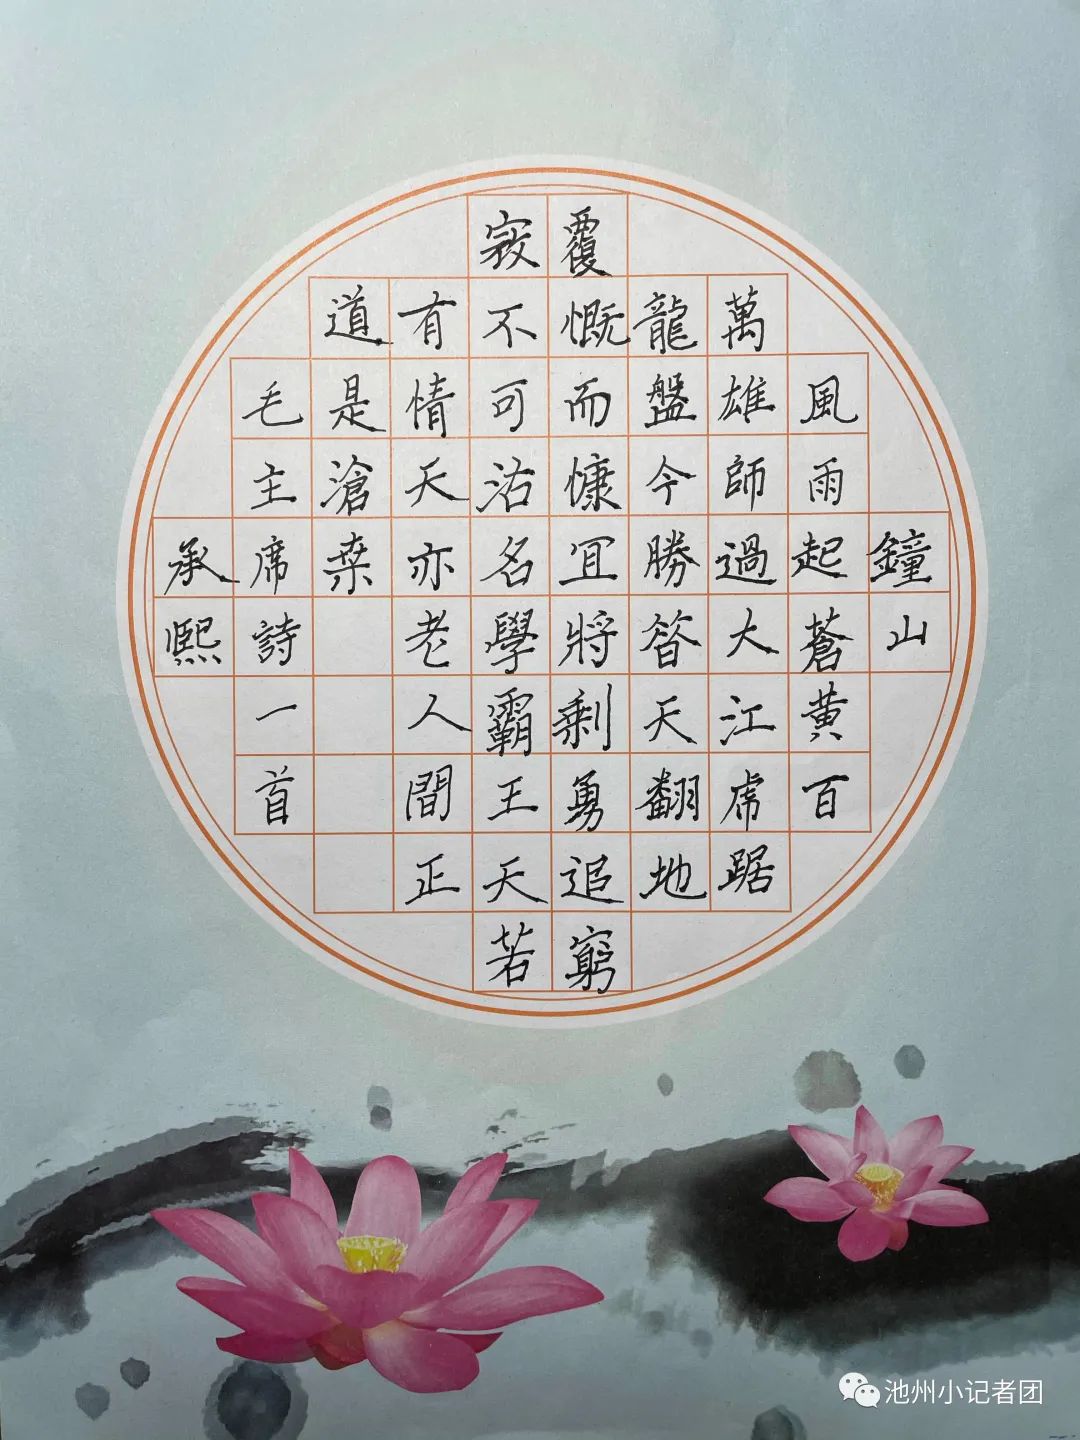 鐘山
風雨起蒼黄百
萬雄師過大江虎踞
龍盤今勝昔天翻地
覆慨而慷宜將剩勇追窮
寇不可沽名學霸王天若
有情天亦老人間正
道是滄桒
毛主席詩一首
承熙
池州小记者团